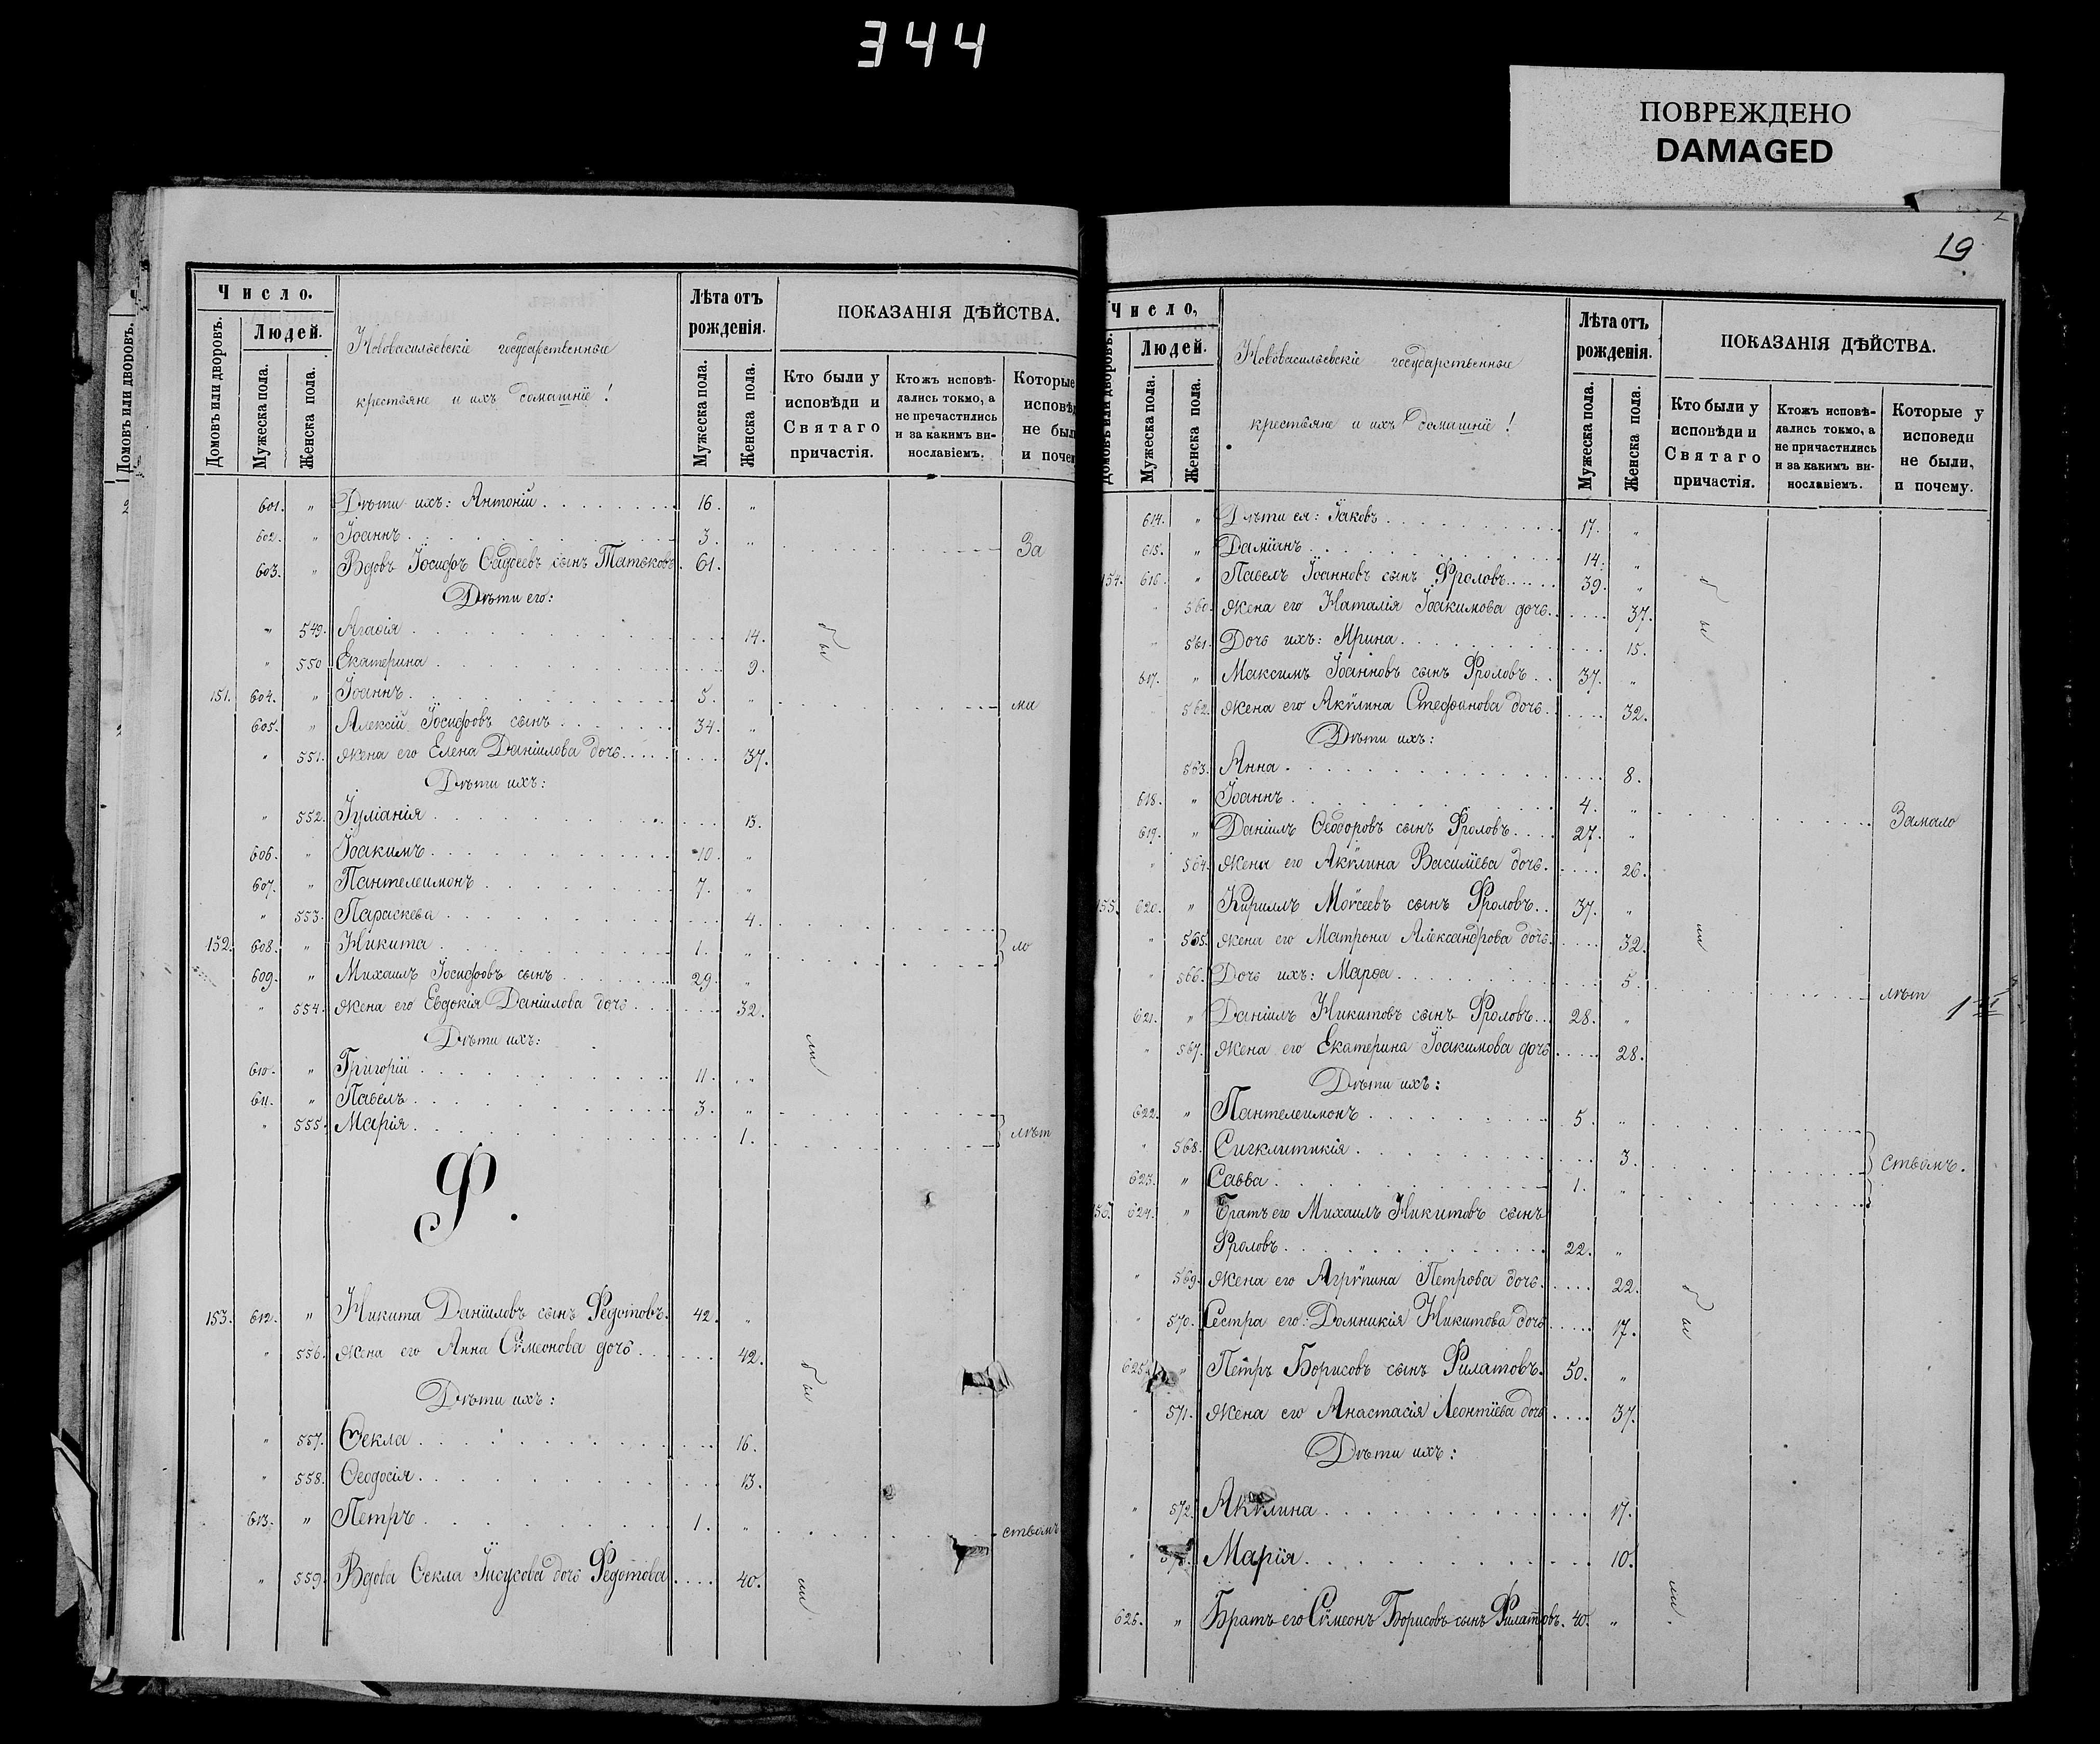 344
ПОВРЕЖДЕНО
DAMAGED
Число.
Лѣта отъ рожденія.
ПОКАЗАНІЯ ДѢЙСТВА.
Домовъ или дворовъ.
Домовъ или дворовъ.
Людей.
Мужеска пола.
Женска пола.
Нововасильевскіе государственные
крестьяне и ихъ домашніе!
Мужеска пола.
Женска пола.
Кто были у исповѣди и Святаго причастія.
Ктожъ исповѣ-дались токмо, а не пречастились и за какимъ ви-нославіемъ.
Которые
исповѣд
не был
и почем
601. " Дѣти ихъ: Антоній 16. "
602. " Іоаннъ 3. " За
603. " Вдовъ Іосифъ Фадѣевъ сынъ Татьковъ. 61.
Дѣти его:
" 549. Агаѳія 14.
" 550 Екатерина 9.
бы
151. 604. " Іоаннъ 5. " ма
605. " Алексій Іосифовъ сынъ 34. "
" 551. Жена его Елена Даніилова дочь 37.
Дѣти ихъ:
" 552. Іуліанія 13.
606. " Іоакимъ 10. "
607. " Пантелеимонъ 7. "
" 553. Параскева 4.
152. 608. " Никита 1. " ло
609. " Михаилъ Іосифовъ сынъ 29. "
" 554. Жена его Евдокія Даніилова дочь 32.
Дѣти ихъ:
ли
610. " Григорій 11. "
611. " Павелъ 3. "
" 555. Марія 1. лѣт
Ф.
153. 612. " Никита Даніиловъ сынъ Федотовъ. 42. "
" 556. Жена его Анна Сѷмеонова дочь 42.
бы
Дѣти ихъ:
" 557. Ѳекла 16.
" 558. Ѳеодосія 13.
613. " Петръ 1. " ствомъ
" 559. Вдова Ѳекла Іисусова дочь Федотова 40.
ли
19
Число,
Лѣта отъ рожденія.
ПОКАЗАНІЯ ДѢЙСТВА.
Домовъ или дворовъ.
Людей.
Мужеска пола.
Женска пола.
Нововасильевскіе государственные
крестьяне и ихъ домашніе!
Мужеска пола.
Женска пола.
Кто были у исповѣди и Святаго причастія.
Ктожъ исповѣ-дались токмо, а не причастились и за какимъ ви-нославіемъ.
Которые у исповеди не были, и почему.
614. " Дѣти ея: Іаковъ 17. "
615. " Даміанъ 14. "
154. 616. " Павелъ Іоанновъ сынъ Фроловъ 39. "
" 560. Жена его Наталія Іоакимова дочь. 37.
бы
" 561. Дочь ихъ: Ирина 15.
617. " Максимъ Іоанновъ сынъ Фроловъ 37. "
562. Жена его Акѷлина Стефанова дочь 32.
Дѣти ихъ:
563. Анна 8.
618. " Іоаннъ 4. " Замало
619. " Даніилъ Ѳеодоровъ сынъ Фроловъ 27. "
" 564. Жена его Акѷлина Василіева дочь. 26.
155. 620. " Кириллъ Моѷсеевъ сынъ Фроловъ 37. "
" 565. Жена его Матрона Александрова дочь. 32.
ли
" 566. Дочь ихъ: Марѳа 5. лѣт
621. " Даніилъ Никитовъ сынъ Фроловъ 28. "
" 567. Жена его Екатерина Іоакимова дочь 28.
Дѣти ихъ:
622. " Пантелеимонъ 5. "
" 568. Сигклитикія 3. ствомъ.
623. " Савва 1. "
156. 624. " Братъ его Михаилъ Никитовъ сынъ
Фроловъ 22. "
" 569. Жена его Агрѷпина Петрова дочь. 22.
" 570. Сестра его: Домникія Никитова дочь 17.
бы
625. " Петръ Борисовъ сынъ Филатовъ. 50. "
" 571. Жена его Анастасія Леонтіева дочь 37.
Дѣти ихъ:
" 572. Акѷлина 17.
" Марія 10.
ли
626. " Братъ его Сѷмеонъ Борисовъ сынъ Филатовъ. 40. "